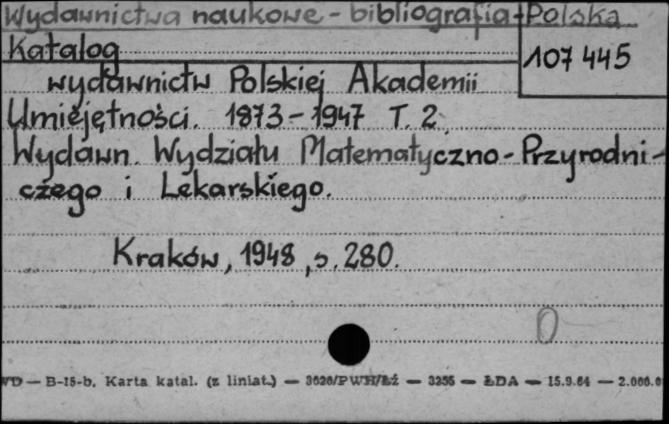 Wydawnictwa naukowe - bibliografia - Polska
Katalog
107 445
wydawnictw Polskiej Akademii
Umiejętności. 1873-1947 T. 2.
Wydawn. Wydziału Matematyczno-Przyrodni-
czego i Lekarskiego.
Kraków, 1948, s. 280.
0
WD — B-15-b. Karta katal. (z liniat.) — 3620/PWH/Łź — 3255 — ŁDA — 15.9.64 — 2.000.0